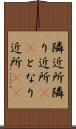 隣近所
り近所
となり
近所